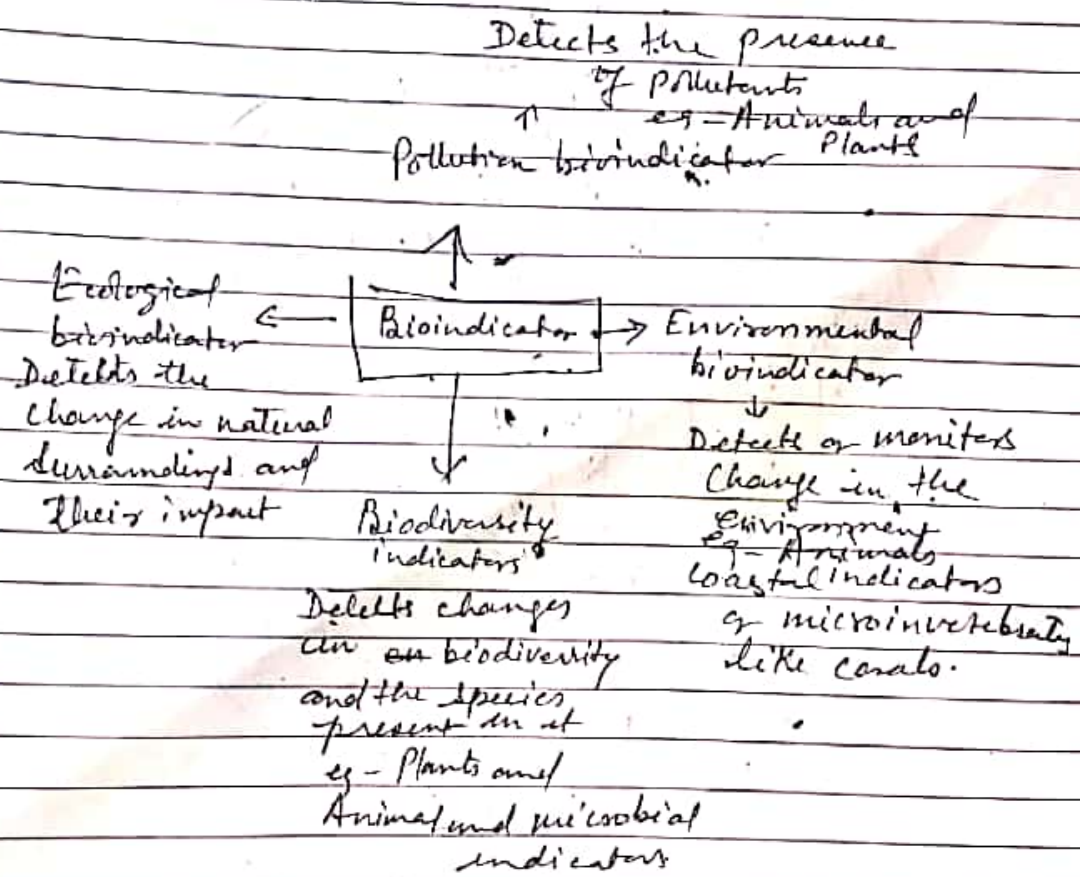 Detects the presence
of pollutants
eg - Animals and
Plants
Pollution bioindicator
Ecological
bioindicator
Detects the
change in natural
surroundings and
their impact
Bioindicator
Environmental
bioindicator
Detects or moniters
Change in the
environment
eg - Animals
Coastal indicators
or microinvertebraty
like corals.
Biodiversity
indicators
Detects changes
in biodiversity
and the species
present in it
eg - Plants and
Animal and microbial
indicators